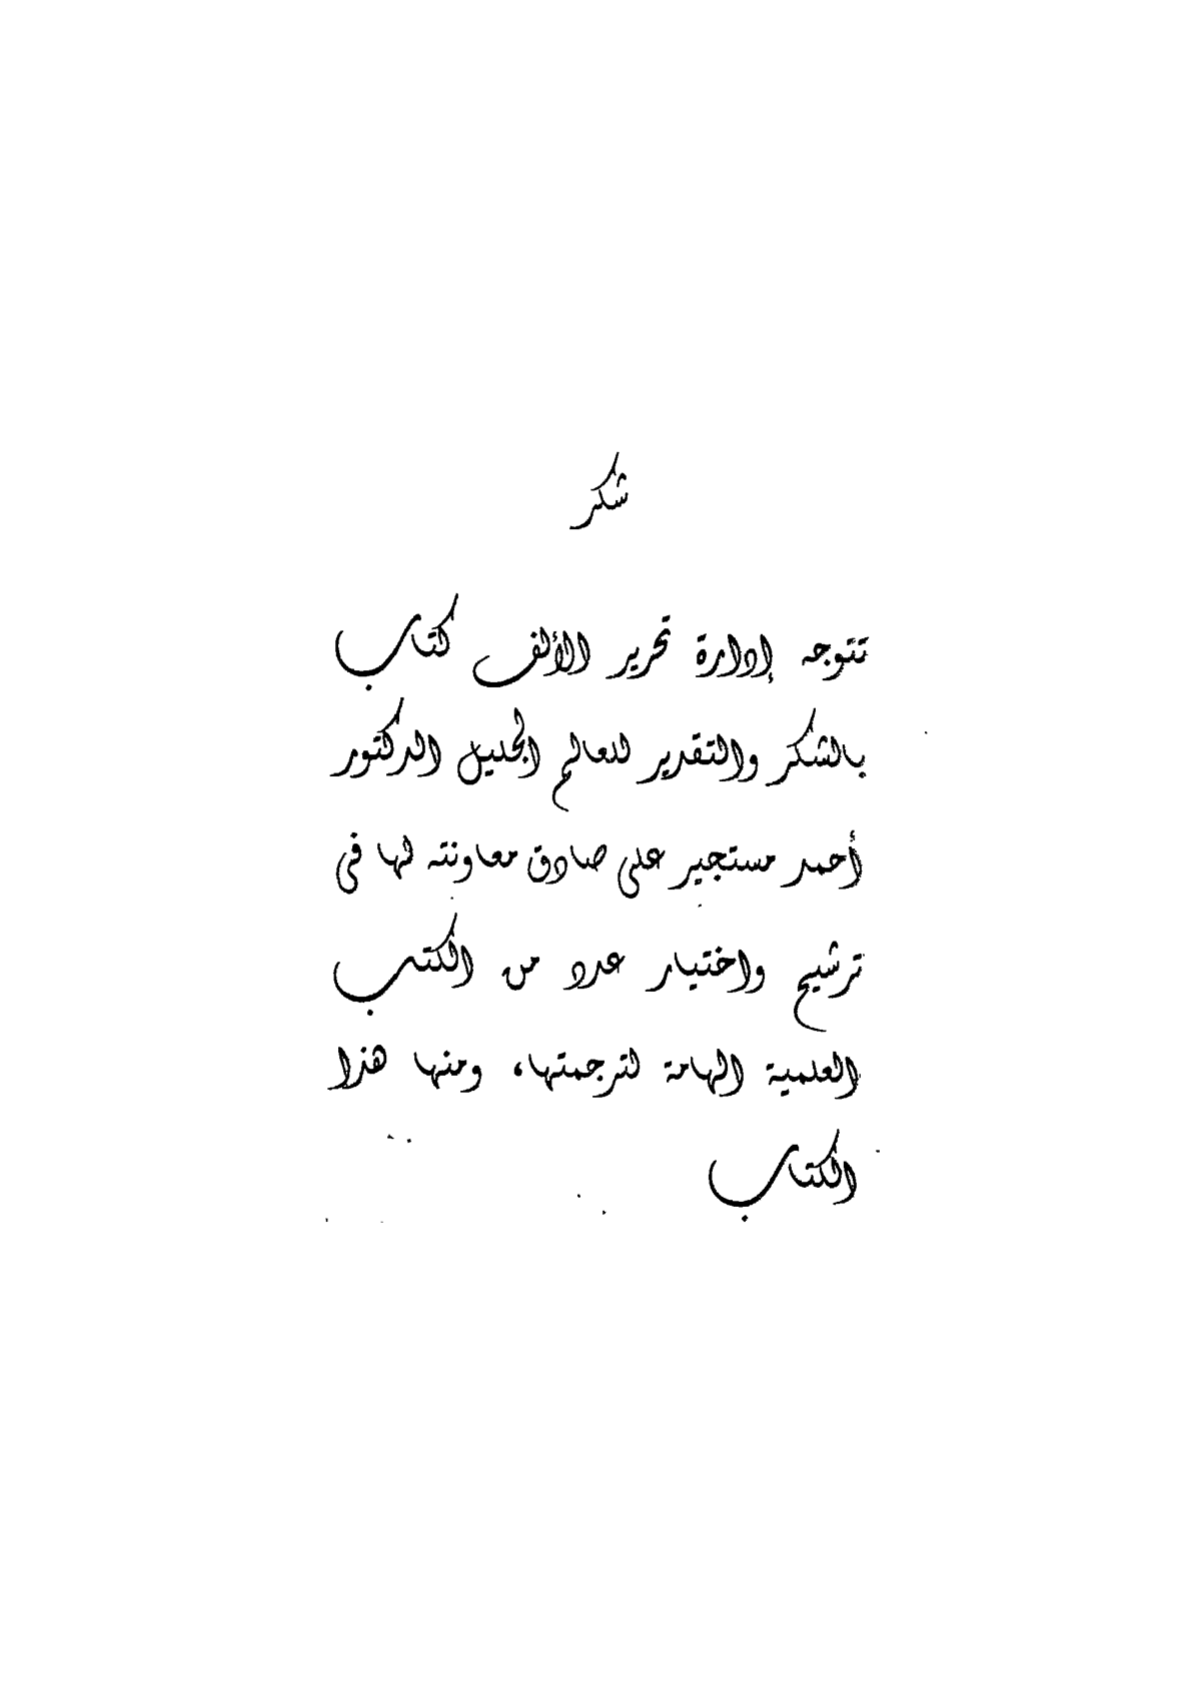 شكر
تتوجه إدارة تحرير الألف كتاب
بالشكر والتقدير للعالم الجليل الدكتور
أحمد مستجير على صادق معاونته لها فى
ترشيح واختيار عدد من الكتب
العلمية الهامة لترجمتها، ومنها هذا
الكتاب